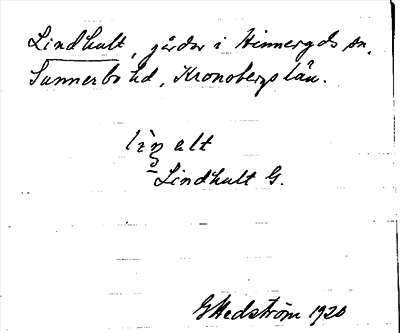 Lindhult, gårdar i Hinneryds sn,
Sunnerbo hd, Kronobergs län.
alt
Lindhult G.
GHedström 1920